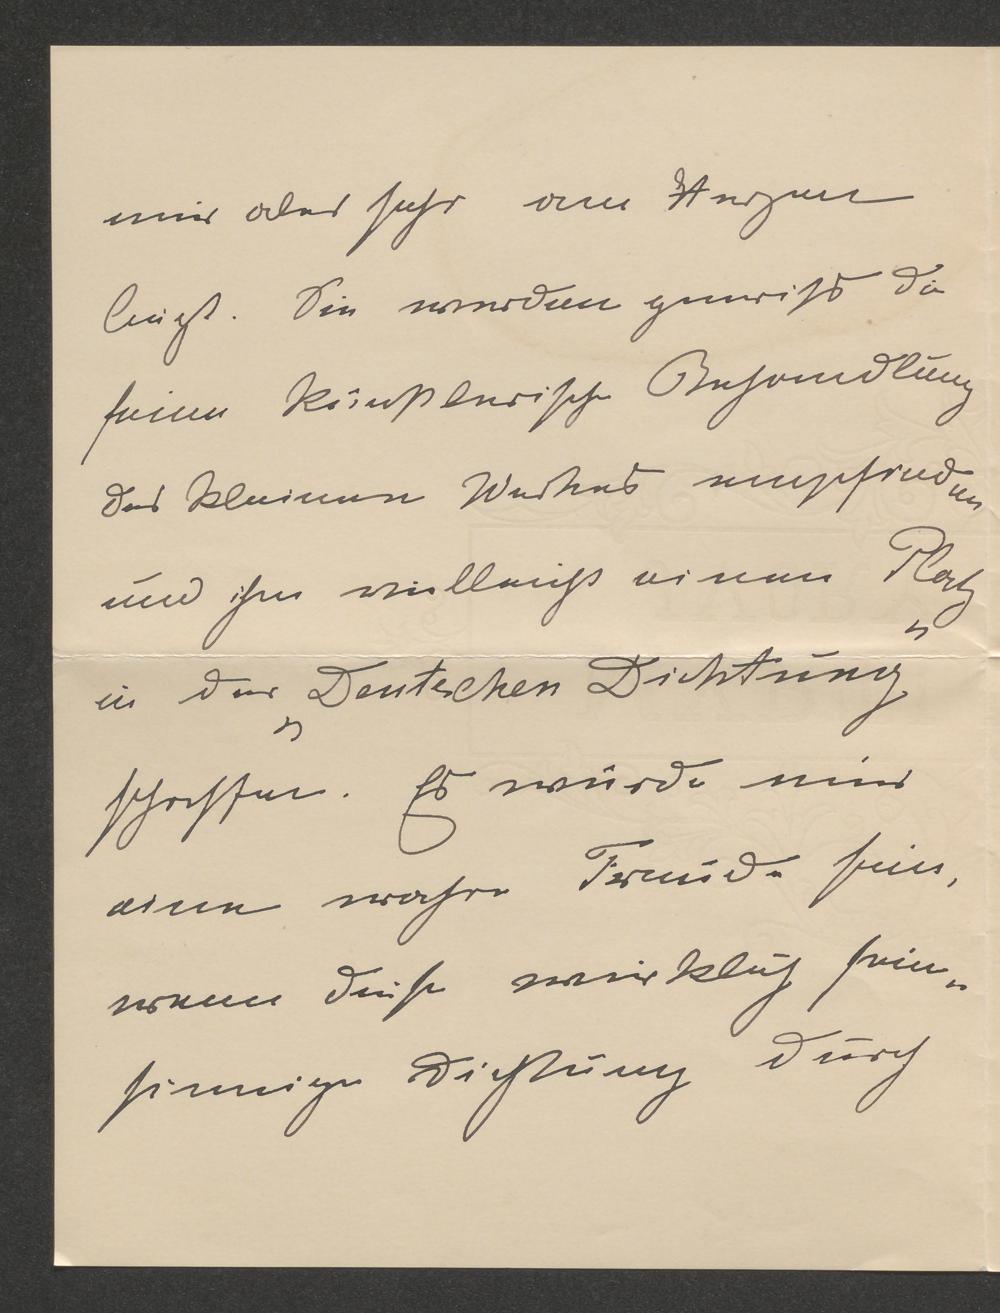 mir aber sehr am Herzen
liegt. Sie werden gewiß die
feine künstlerische Behandlung
des kleinen Werkes empfinden
und ihm vielleicht einen Platz
in der „Deutschen Dichtung“
schaffen. Es würde mir
eine wahre Freude sein,
wenn diese wirklich fein-
sinnige Dichtung durch